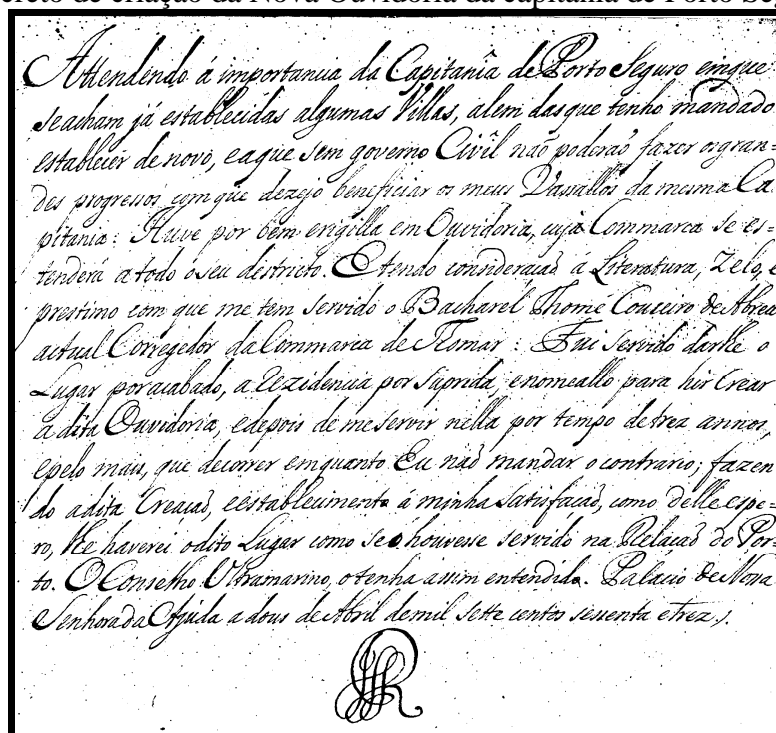 creto de criação da Nova Ouvidoria da capitania de Porto Seg
Attendendo á importancia da Capitanîa de Porto Seguro em que
se acham já estabelecidas algumas Villas, alem das que tenho mandado
estabelecer de novo, e a que sem governo Civîl naõ poderaõ fazer os gran=
des progressos com que dezejo beneficiar os meus Vassallos da mesma Ca
pitania: Huve por bem erigilla em Ouvidoria, cuja Commarca se es=
tenderá a todo o seu destricto. E tendo consideraçaõ á Literatura, Zelo, e
prestimo com que me tem servido o Bacharel Thomé Couceiro de Abreu
actual Corregedor da Commarca de Thomar: Fui servido darlhe o
Lugar por acabado, a Rezidencia por suprida, e nomeallo para hir Crear
a dita Ouvidoria, e depois de me servir nella por tempo de trez annos,
e pelo mais, que decorrer em quanto Eu naõ mandar o contrario; fazen
do a dita Creaçaõ, e establecimento á minha satisfaçaõ, como delle espe=
ro, lhe haverei o dito Lugar como se o houvesse servido na Relaçaõ do Por=
to. O Conselho Ultramarino, o tenha assim entendido. Palacio de Nossa
Senhora da Ajuda a dous de Abril de mil sette centos sessenta e trez.